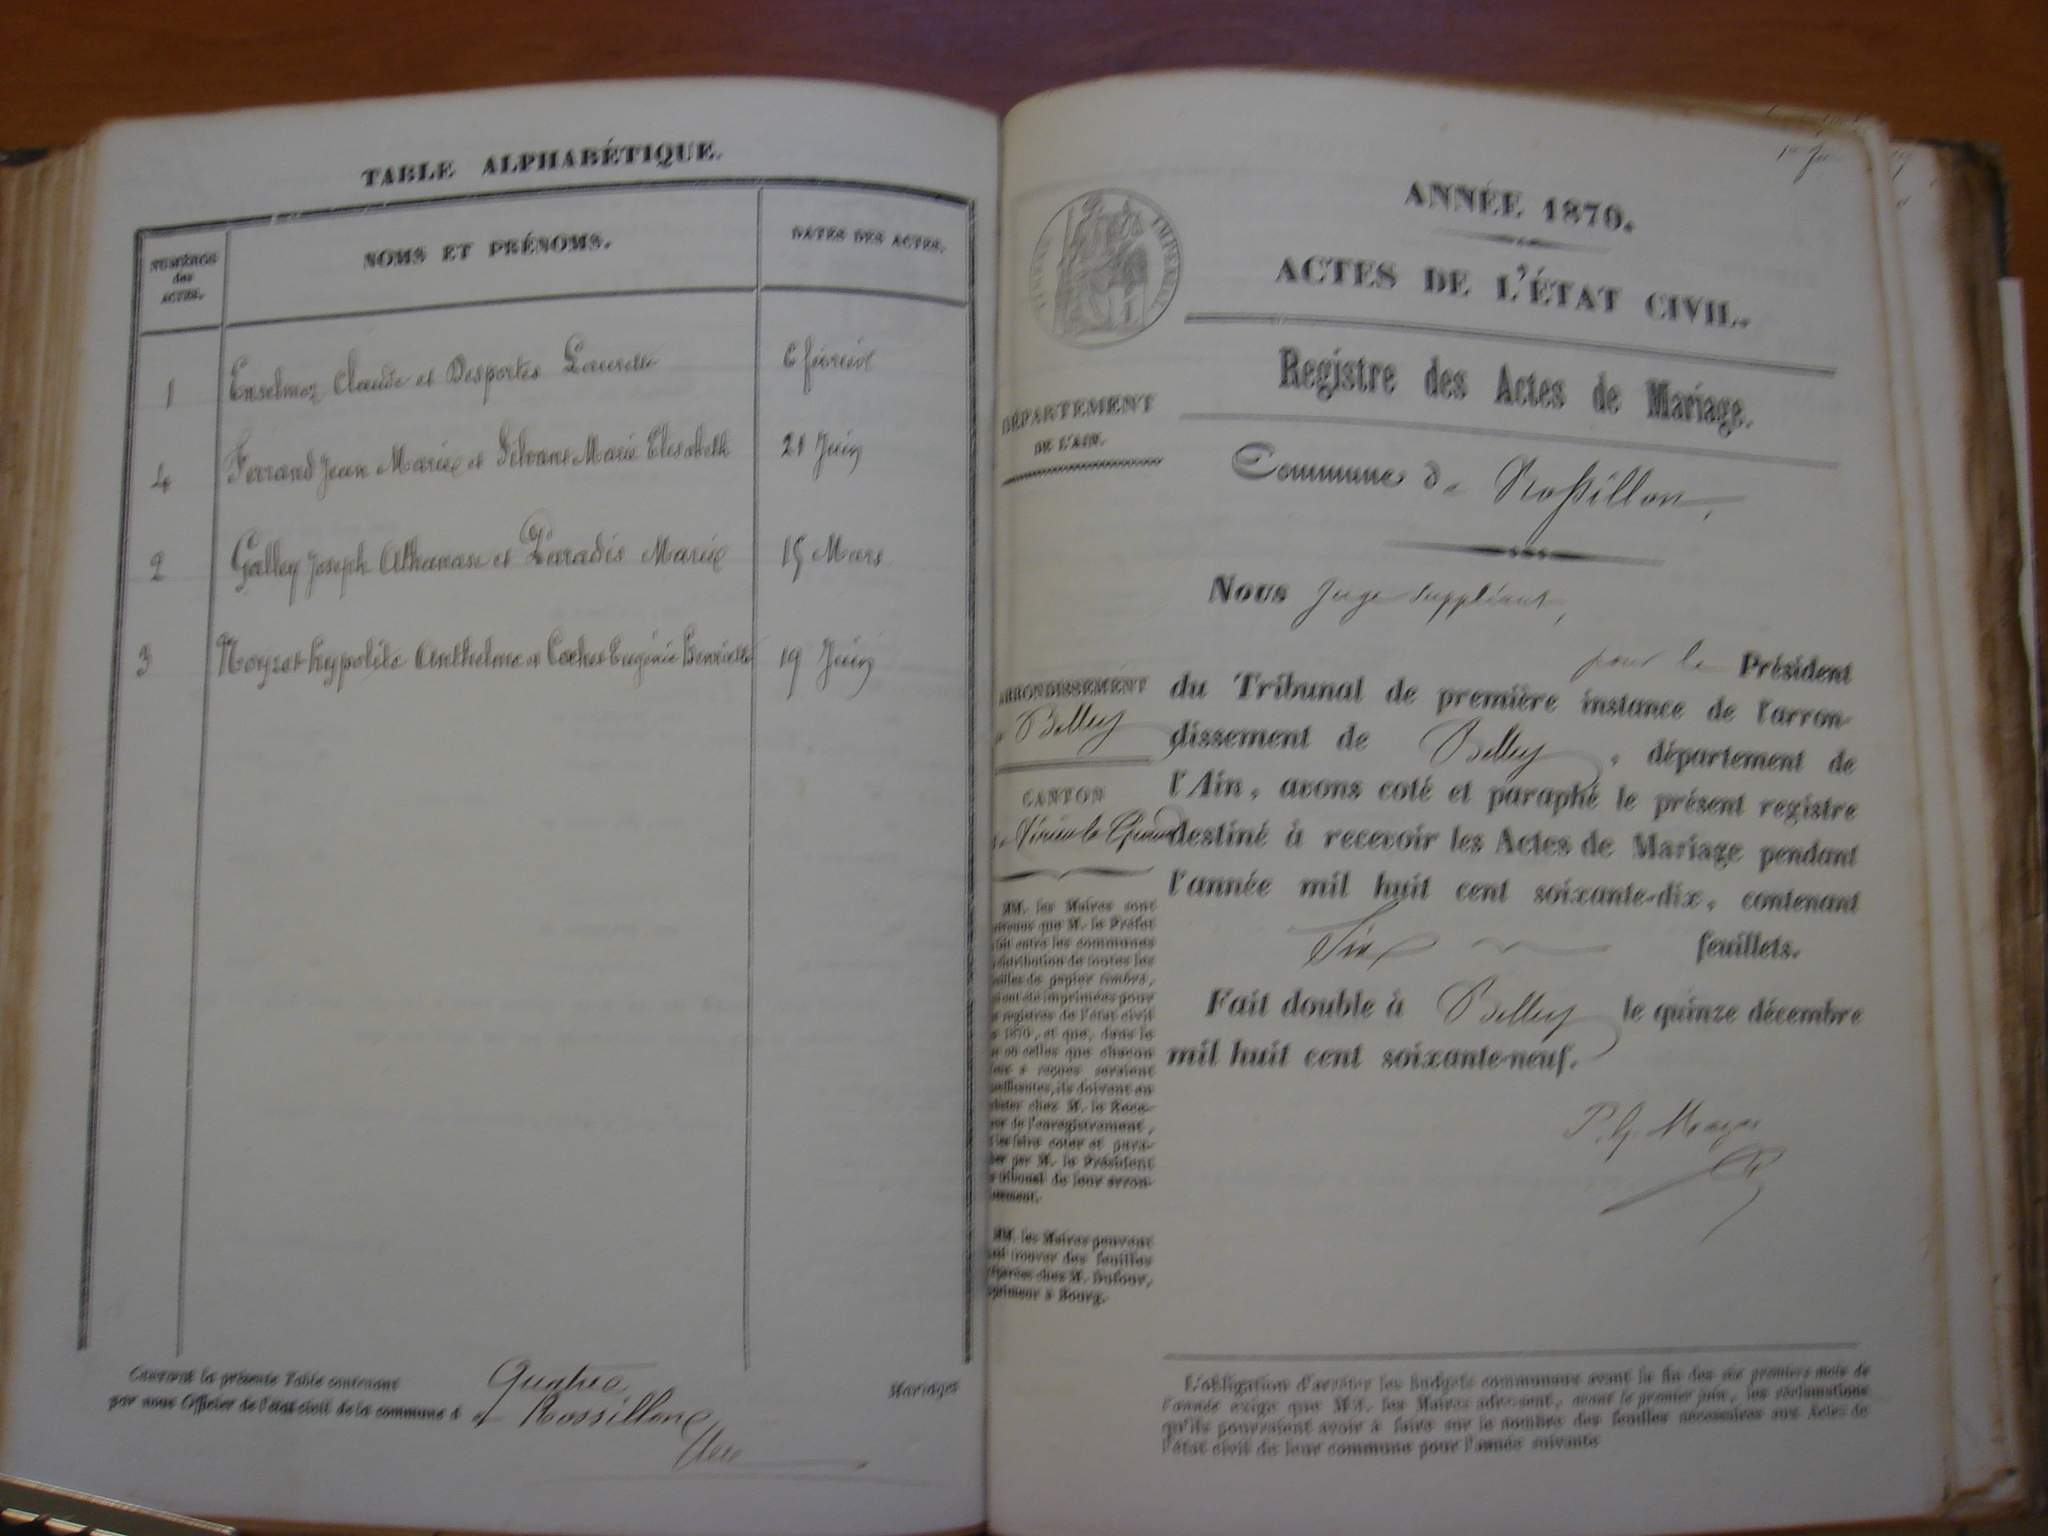 TABLE ALPHABÉTIQUE.
NUMÉROS
des
ACTES.
NOMS ET PRÉNOMS.
DATES DES ACTES.
1 Enselmoz Claude et Desportes Laurette 6 février
4 Ferrand Jean Marie et Marie Elisabeth 21 Juin
2 Galley Joseph Athanase et Paradis Marie 15 Mars
3 hypolite Anthelme et Cochet Eugénie Henriette 19 Juin
la présente Table contenant Quatre Mariages
par nous Officier de l'état civil de la commune d e Rossillon
ANNÉE 1870.
ACTES DE L'ÉTAT CIVIL.
Registre des Actes de Mariage.
TIMBRE IMPÉRIAL
DÉPARTEMENT
DE L'AIN.
Commune de Rossillon,
Nous Juge suppléant,
pour le Président
du Tribunal de première instance de l'arron-
dissement de Belley, département de
l'Ain, avons coté et paraphé le présent registre
destiné à recevoir les Actes de Mariage pendant
l'année mil huit cent soixante-dix, contenant
Six feuillets.
Fait double à Belley le quinze décembre
mil huit cent soixante-neuf.
ARRONDISSEMENT
Belley
CANTON
Virieu le Grand
MM. les Maires sont
que M. le Préfet
entre les communes
distribution de toutes les
de papier timbré,
ont été imprimées pour
registres de l'état civil
1870, et que, dans le
où celles que chacun
reçues seraient
ils doivent en
chez M. le Rece-
de l'enregistrement,
les faire coter et para-
par M. le Président
tribunal de leur arron-
MM. les Maires peuvent
trouver des feuilles
chez M. Dufour,
à Bourg.
L'obligation d'arrêter les budgets communaux avant la fin des six premiers mois de
l'année exige que MM. les Maires adressent, avant le premier juin, les réclamations
qu'ils pourraient avoir à faire sur le nombre des feuilles nécessaires aux Actes de
l'état civil de leur commune pour l'année suivante